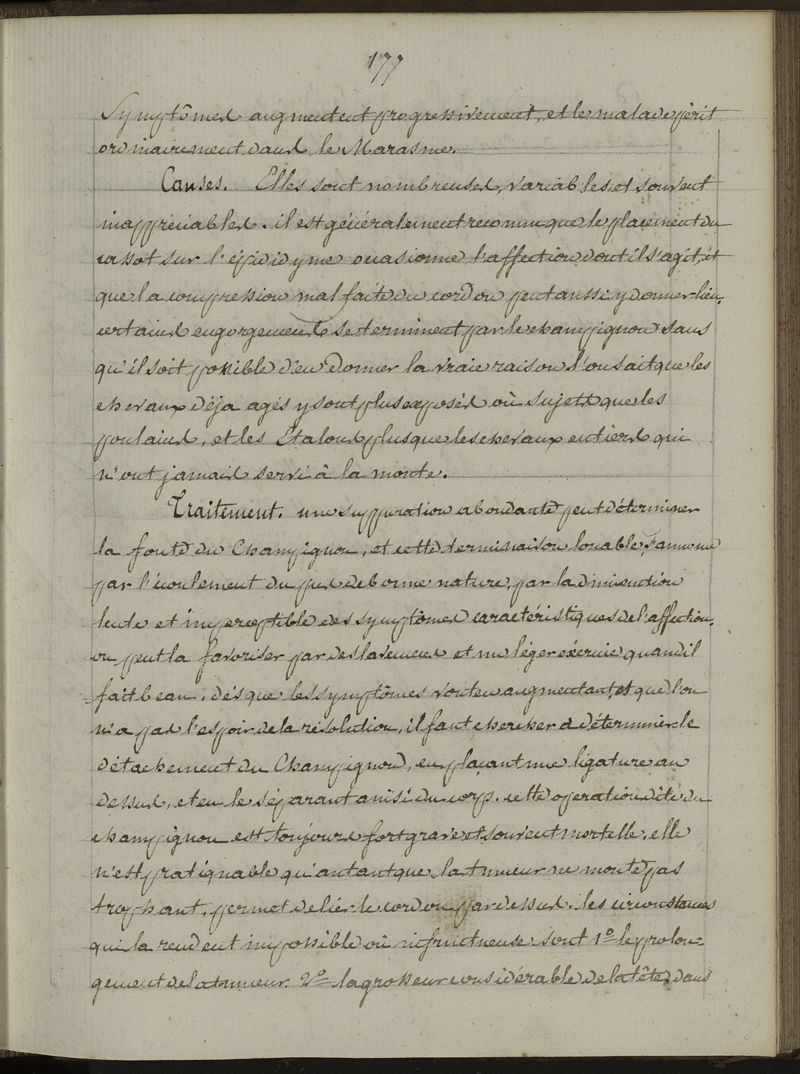 177
Symptômes augmentent progressivement, et le malade périt
ordinairement dans le Marasme.
Causes. Elles sont nombreuses, variables, et souvent
inappréciables. il est généralement reconnu que le placement du
cassot sur l'épididyme occasionne l'affection dont il s'agit, et
que la compression mal faite du cordon peut aussi y donner lieu,
certains engorgements se terminent par le champignon sans
qu'il soit possible d'en donner la vraie raison l'on sait que les
chevaux déja agés y sont plus exposés où sujets que les
poulains, et les Étalons plus que les chevaux entiers qui
n'ont jamais servi à la monte.
Traitement. une suppuration abondante peut déterminer
la fonte du Champignon, et cette terminaison louable s'annonce
par l'écoulement du pus de bonne nature, par la diminution
lente et imperceptible des symptômes caractéristiques de l'affection,
on peut la favoriser par des lavements et un léger exercice quand il
fait beau, dés que les symptômes vont en augmentant, et que l'on
n'a pas l'espoir de la résolution, il faut chercher à déterminer le
détachement du Champignon, en plaçant une ligature au
dessus, et en le séparant ainsi du corps. cette operation dite du
champignon est toujours fort grave et souvent mortelle, elle
n'est pratiquable qu'autant que la tumeur ne monte pas
trop haut, permet de lier le cordon par dessus. les circonstances
qui la rendent impossible où infructueuse sont 1º le prolon-
gement de la tumeur. 2º la grosseur considérable de la tête, dans